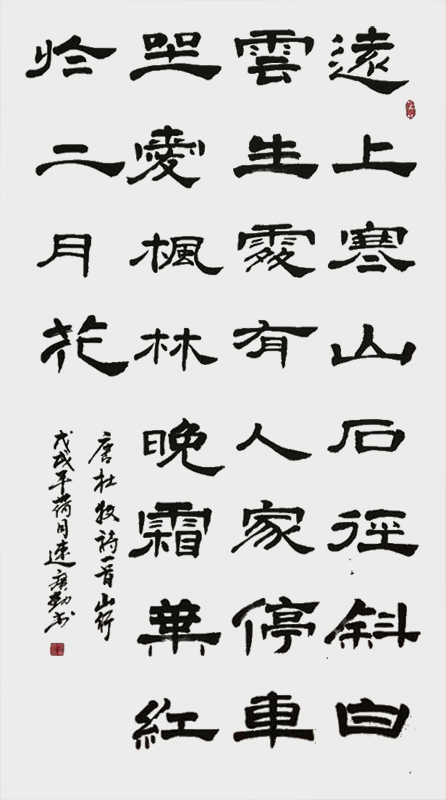 遠上寒山石徑斜白
雲生處有人家停車
坐愛楓林晚霜葉紅
於二月花
唐杜牧詩一首山行
戊戌年荷月